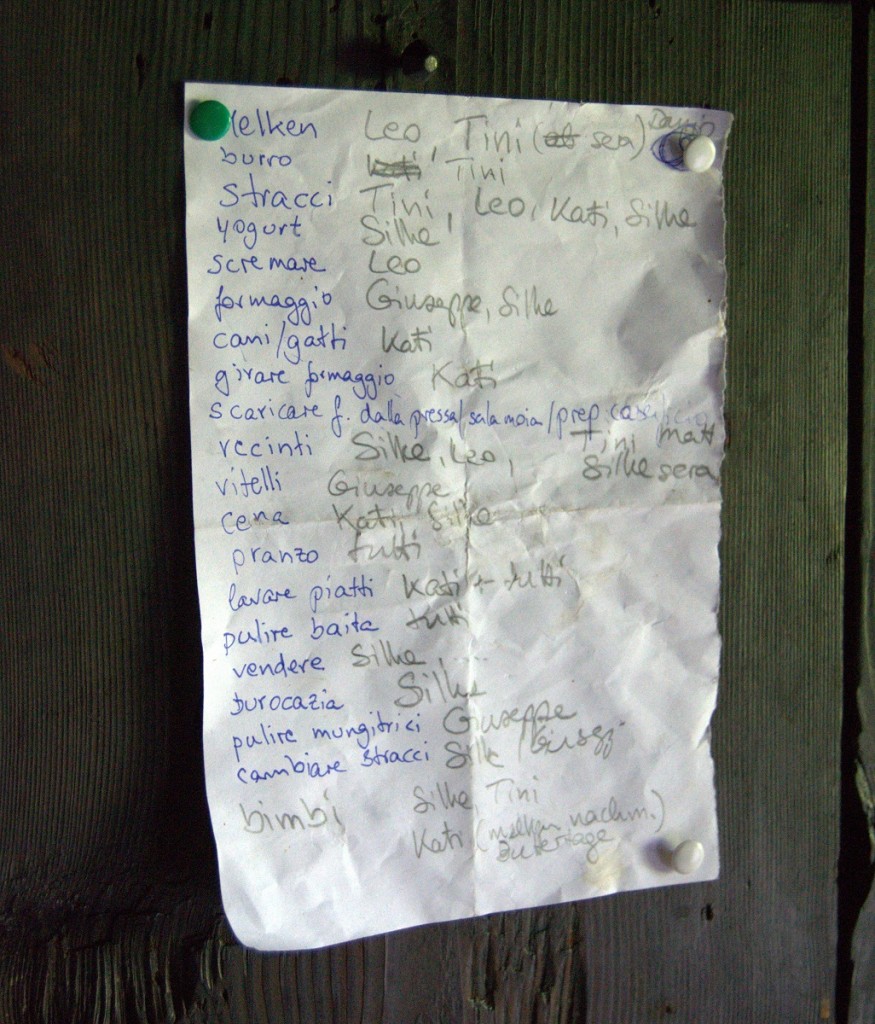 Melken Leo, Tini (ab sera) Dario
burro Kati, Tini
stracci Tini, Leo, Kati, Silke
yogurt Silke
scremare Leo
formaggio Giuseppe, Silke
cani/gatti Kati
girare formaggio Kati
scaricare f. dalla pressa/salamoia/prep caseificio
Tini matt
recinti Silke, Leo,
Silke sera
vitelli Giuseppe
cena Kati, Silke
pranzo tutti
lavare piatti Kati + tutti
pulire baita tutti
vendere Silke, ...
burocazia Silke
pulire mungitrici Giuseppe
cambiare stracci Silke /
bimbi Silke, Tini
Kati (melken nachm.)